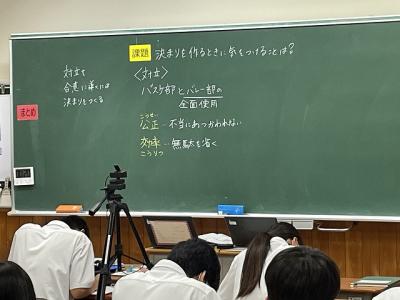 課題 決まりを作るときに気をつけることは?
〈対立〉
バスケ部とバレー部の
全面使用
こうせい
公正…不当にあつかわれない
効率…無駄を省く
こうりつ
対立を
合意に導くには
決まりをつくる
まとめ